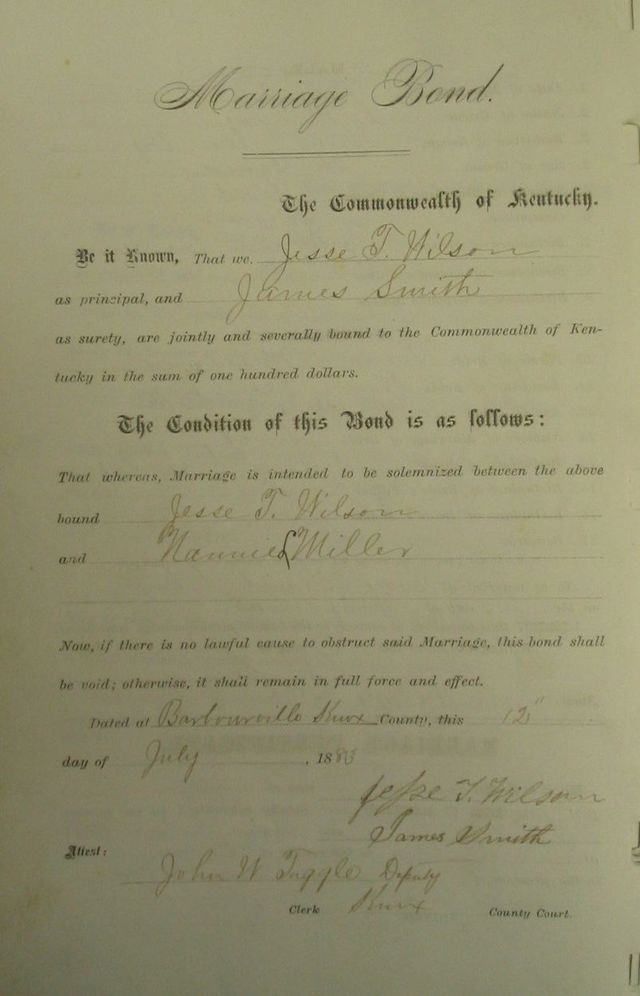 Marriage Bond.
The Commonwealth of Kentucky.
Be it Known, That we Jesse T. Wilson
as principal, and James Smith
as surety, are jointly and severally bound to the Commonwealth of Ken-
tucky in the sum of one hundred dollars.
The Condition of this Bond is as follows:
That whereas, Marriage is intended to be solemnized between the above
bound Jesse T. Wilson
and Nannie L Miller
Now, if there is no lawful cause to obstruct said Marriage, this bond shall
be void; otherwise, it shall remain in full force and effect.
Dated at Barbourville Knox County, this 12"
day of July, 188
Jesse T. Wilson
James Smith
Attest:
John W Tuggle Deputy
Clerk Knox County Court.